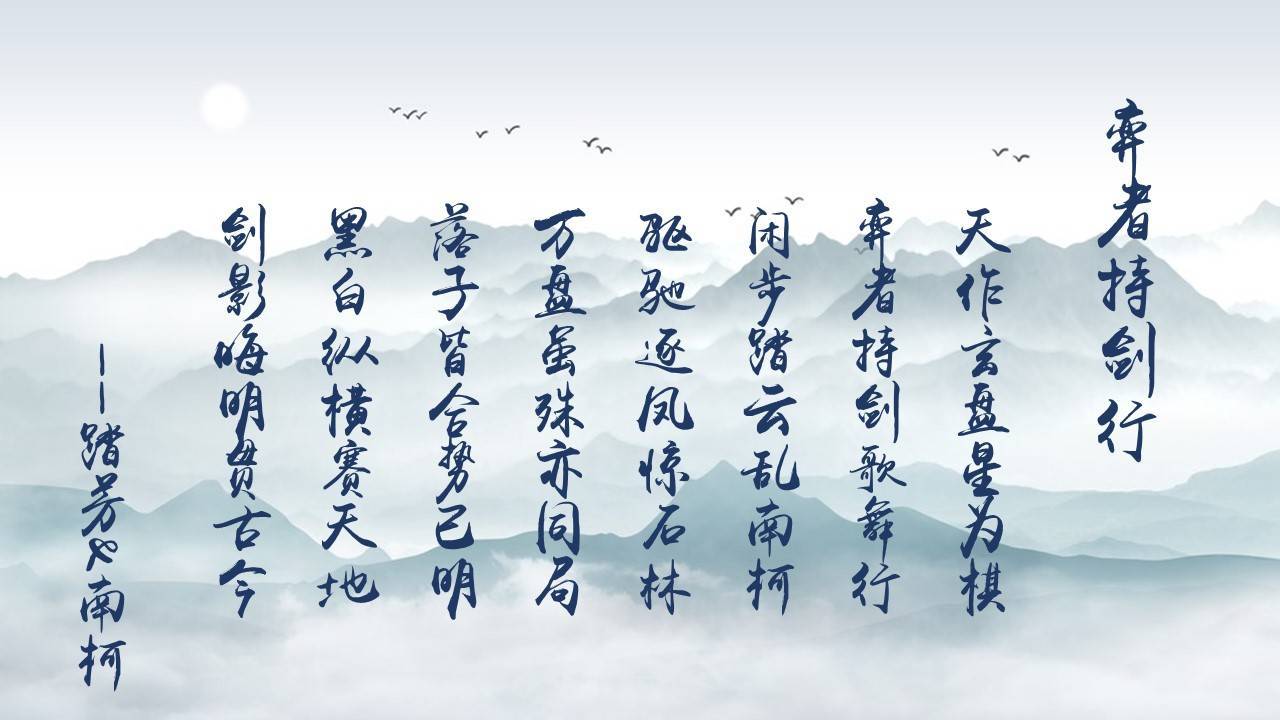 弈者持剑行
天作玄盘星为棋
弈者持剑歌舞行
闲步踏云乱南柯
驱驰逐凤惊石林
万盘虽殊亦同局
落子皆合势已明
黑白纵横赛天地
剑影晦明贯古今
——踏芳心南柯